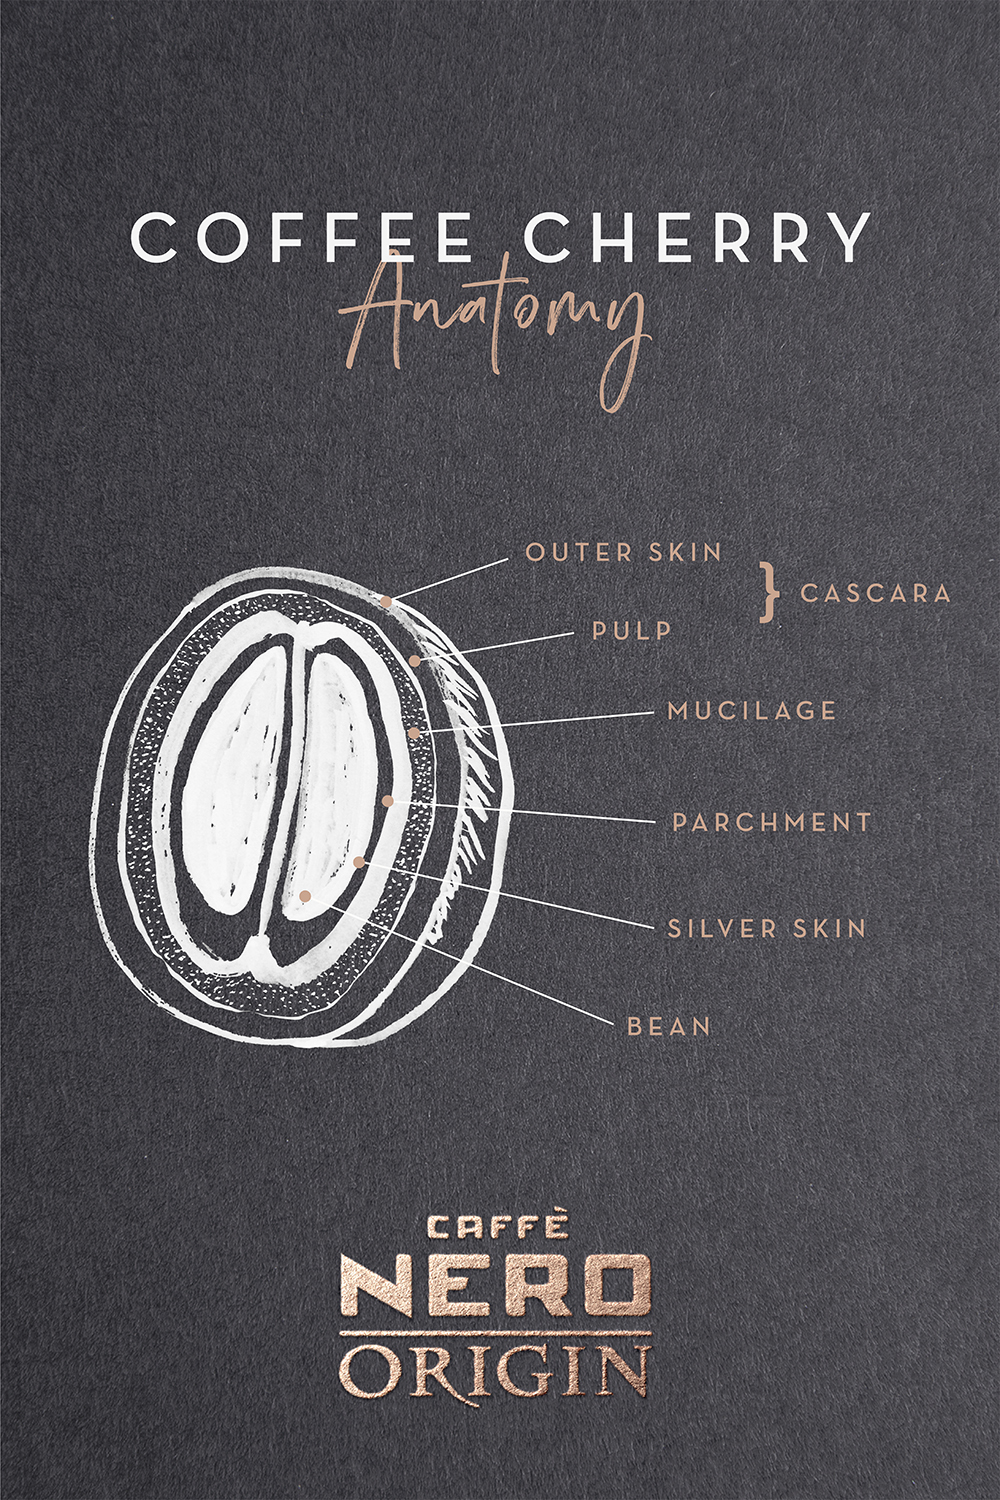 COFFEE CHERRY
Anatomy
OUTER SKIN
PULP
} CASCARA
MUCILAGE
PARCHMENT
SILVER SKIN
BEAN
CAFFÈ
NERO
ORIGIN